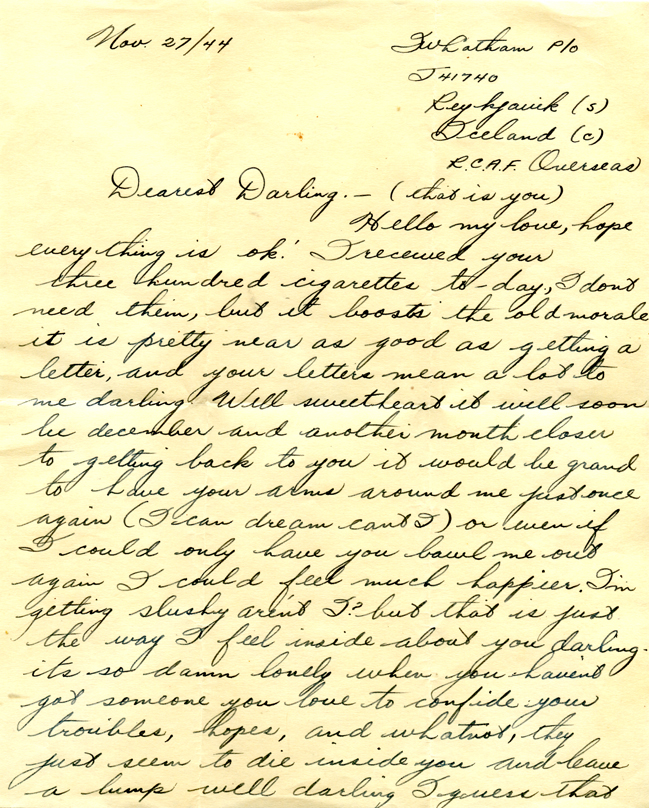 Nov. 27/44
JW Latham P/O
J41740
Reykjavik (s)
Iceland (c)
R.C.A.F. Overseas
Dearest Darling. — (that is you)
Hello my love, hope
everything is ok! I received your
three hundred cigarettes to-day, I dont
need them, but it boosts the old morale
it is pretty near as good as getting a
letter, and your letters mean a lot to
me darling. Well sweetheart it will soon
be december and another month closer
to getting back to you it would be grand
to have your arms around me just once
again (I can dream cant I) or even if
I could only have you bawl me out
again I could feel much happier. I'm
getting slushy aren't I? but that is just
the way I feel inside about you darling.
its so damn lonely when you havent
got someone you love to confide your
troubles, hopes, and whatnot, they
just seem to die inside you and leave
a lump well darling I guess that